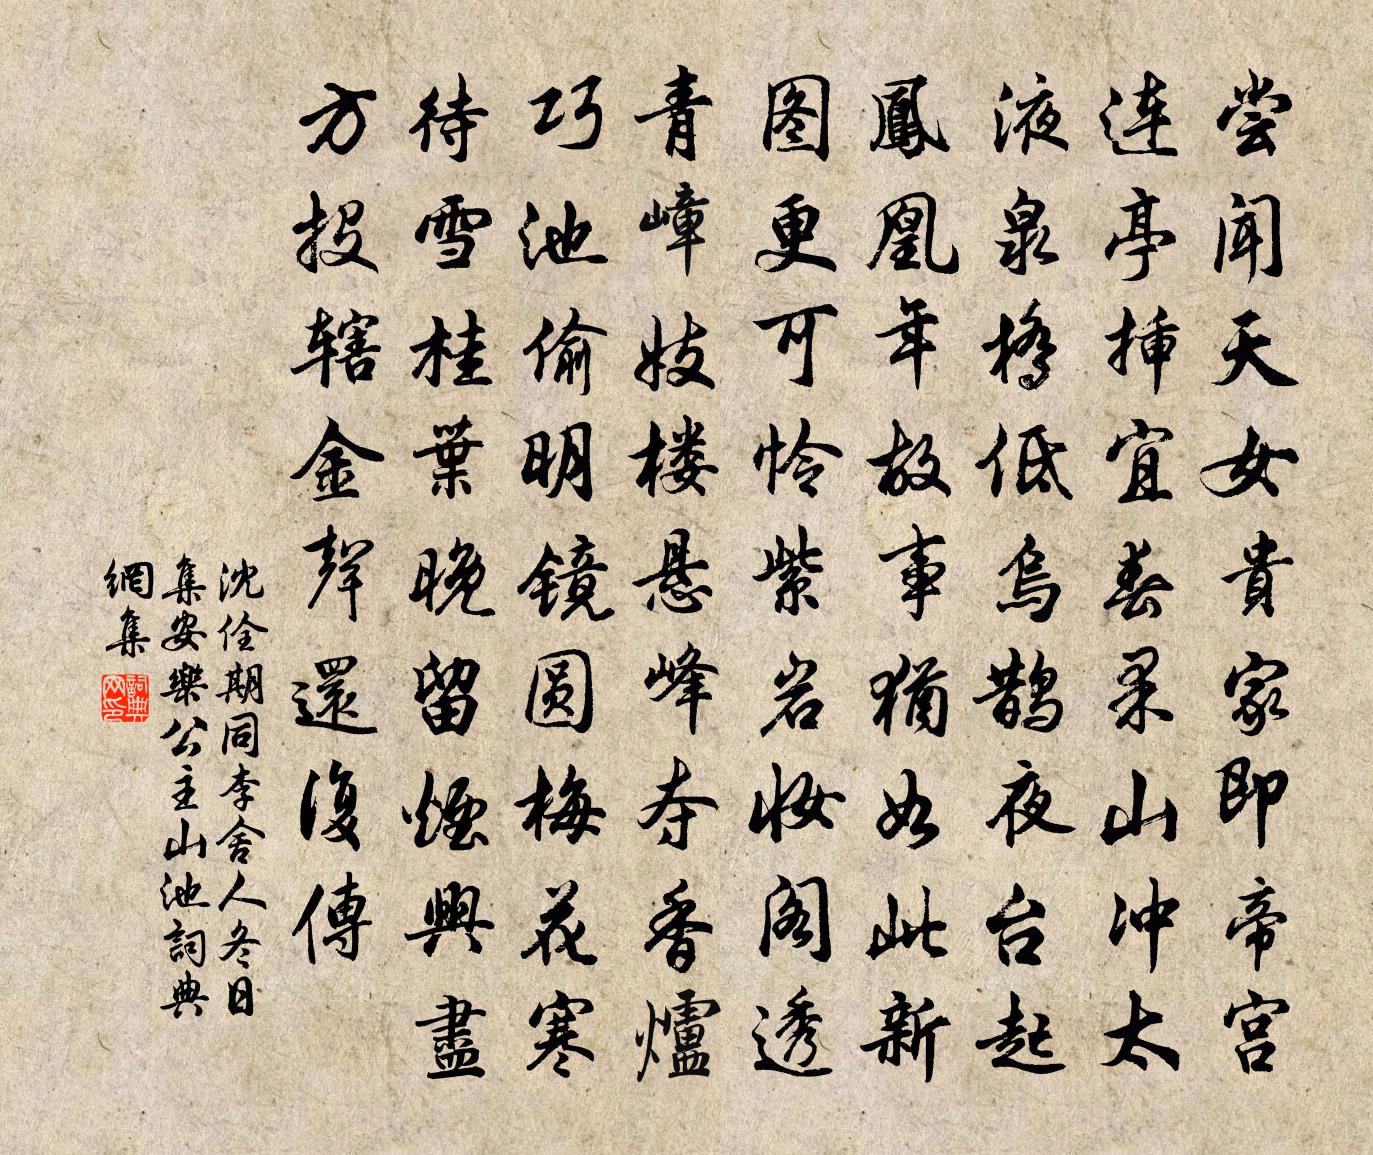 尝闻天女貴家即帝宫
连亭插宜春果山冲太
液泉橋低烏鹊夜台起
鳳凰年故事猶如此新
图更可怜紫岩妝阁透
青嶂妓楼悬峰夺香爐
巧池偷明镜圆梅花寒
待雪桂葉晚留煙興盡
方投辖金声還復傳
沈佺期同李舍人冬日
集安樂公主山池詞典
網集